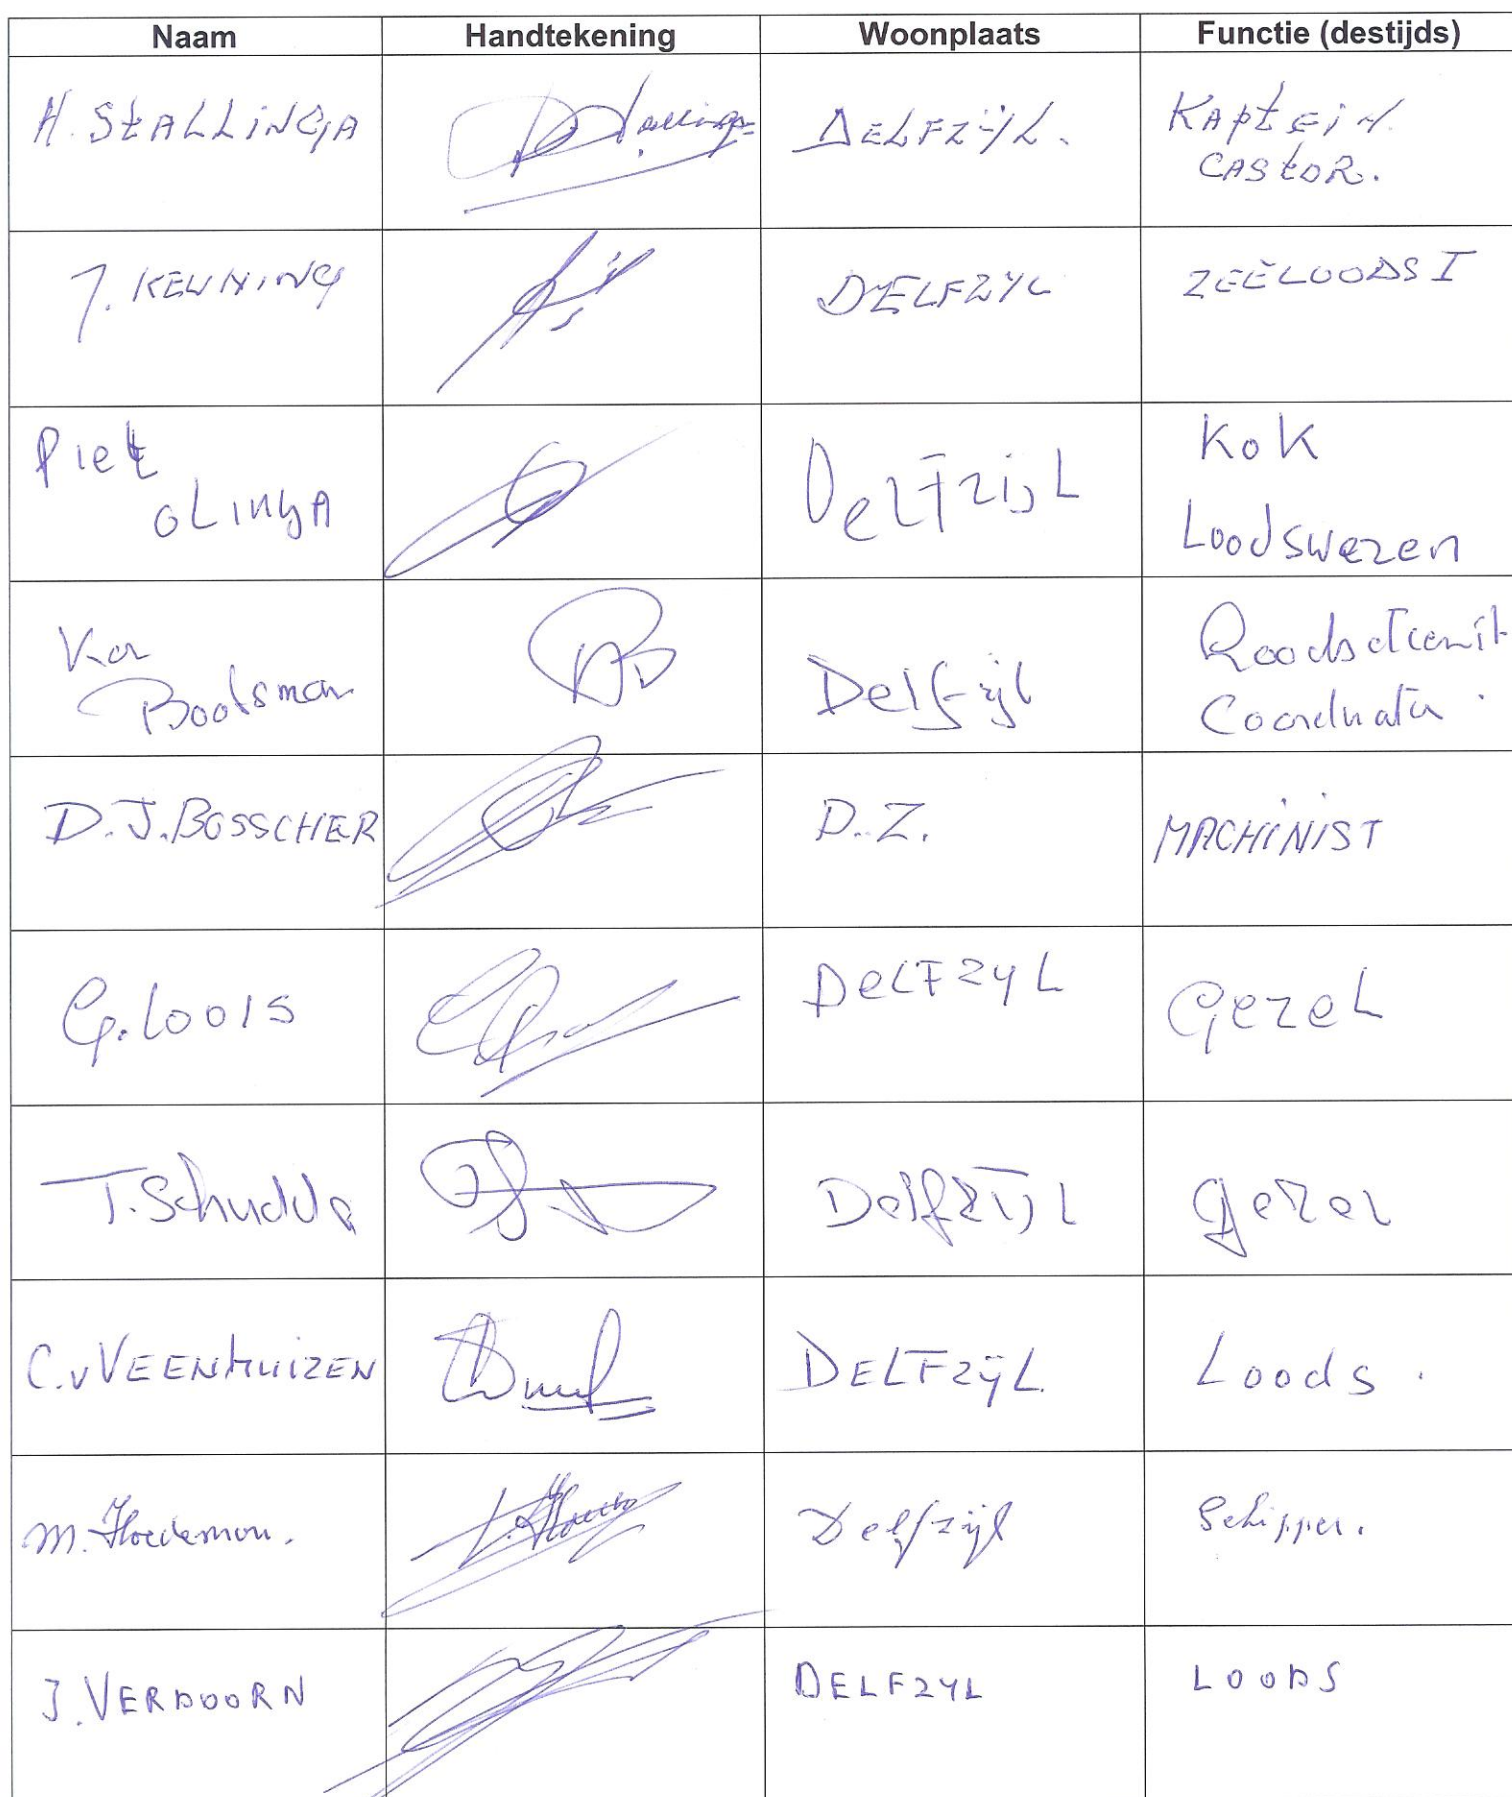 Naam Handtekening Woonplaats Functie (destijds)
H. StALLiNGA DELFZijL. KAptEiN
CAStOR.
J. KEUNING DELFZYL ZEELOODS I
Piet Delfzijl Kok
OLINGA Loodswezen
Delfzijl
Bootsman Coordinator
D.J. BOSSCHER D.Z. MACHINIST
G. Loois DeLFZYL GezeL
T. Schudde Delfzijl gezel
C.v VEENHUIZEN DELFZijL Loods.
M. Hoedeman. Delfzijl Schipper.
J. VERDOORN DELFZYL LOODS